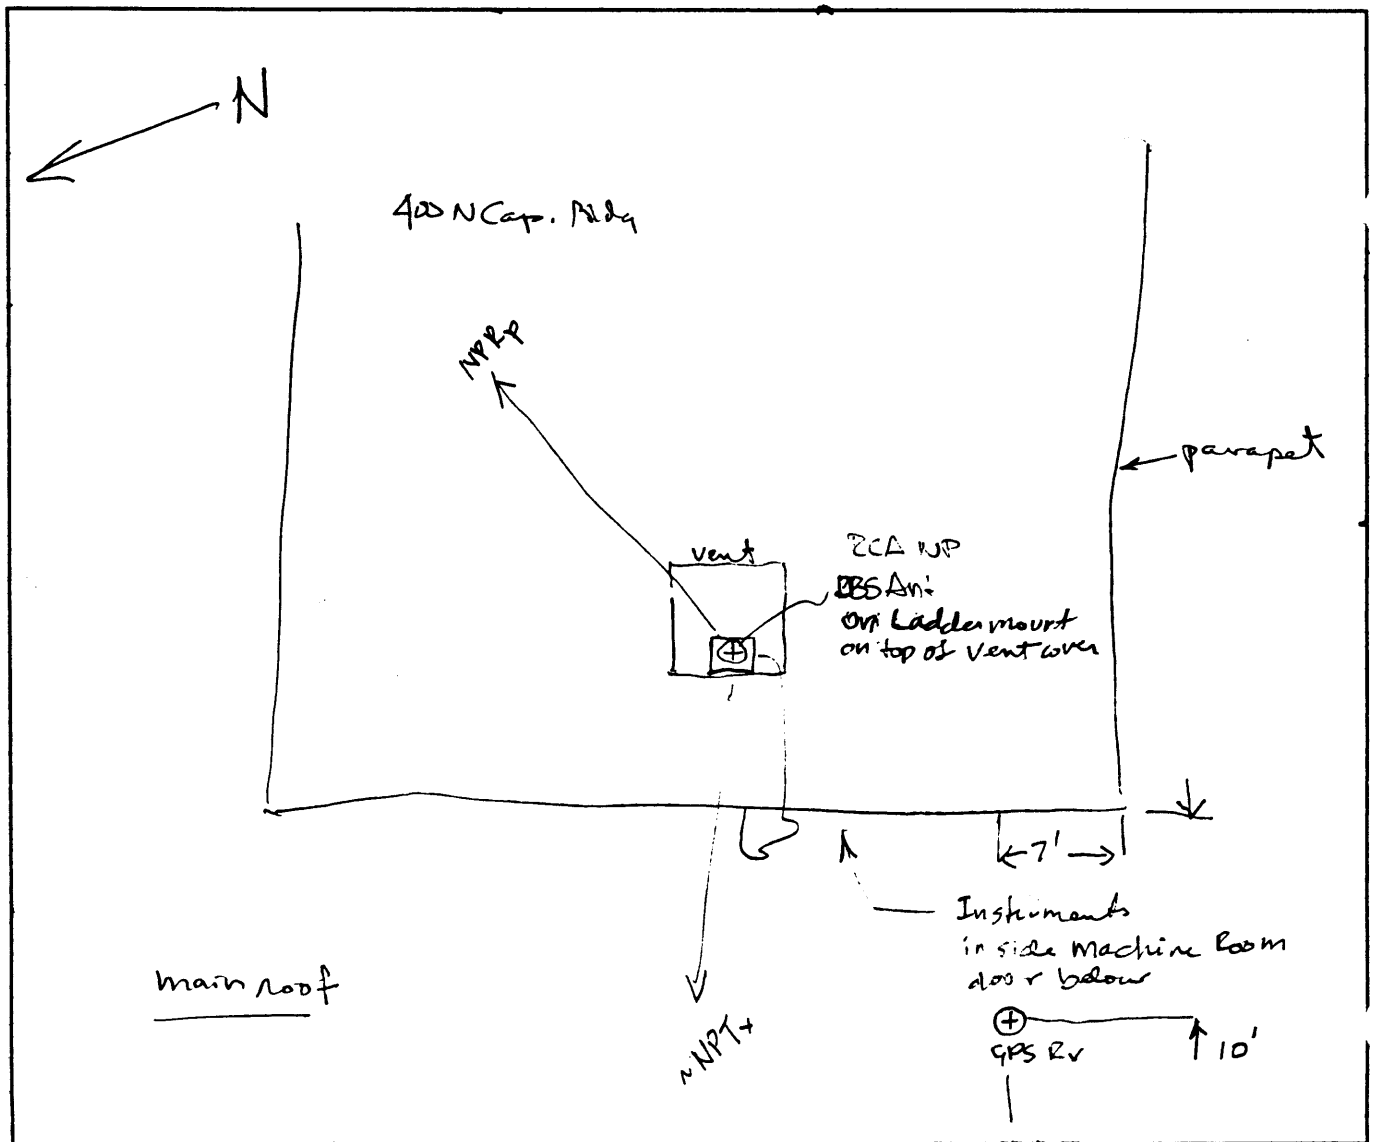 N
400 N Cap. Bldg
NPRp
parapet
vent
RCA NP
DBS Ant
on Ladder mount
on top of vent cover
7'
Instruments
inside Machine Room
door below
main roof
GPS Rv
10'
~NPT+